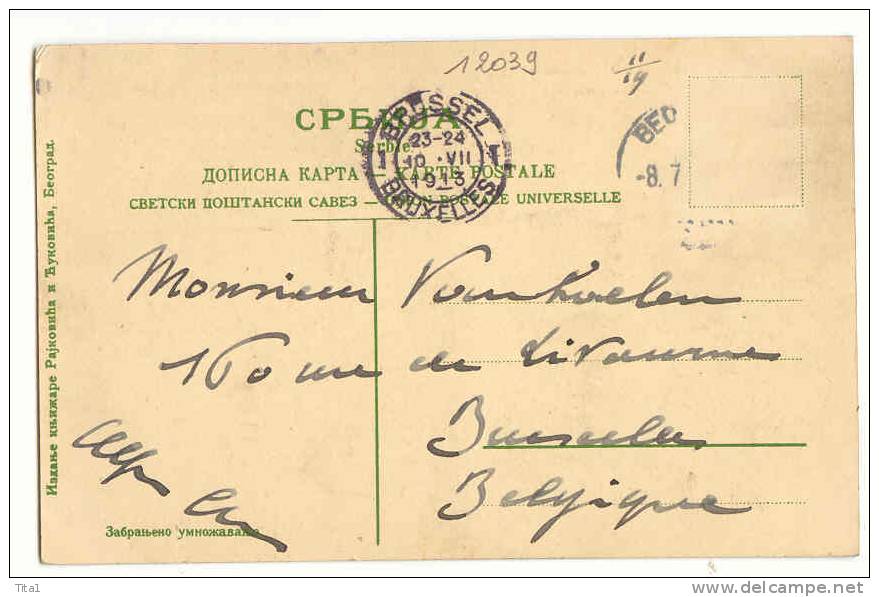 12039
11/19
СРБИЈА
Serbie
ДОПИСНА КАРТА — KARTE POSTALE
СВЕТСКИ ПОШТАНСКИ САВЕЗ — UNION POSTALE UNIVERSELLE
BRUSSEL
23-24
10 VII
1913
BRUXELLES
BEO
-8.7
Monsieur
de Livourne
Bruxelles
Belgique
Издање књижаре Рајковића и Ђуковића, Београд.
Забрањено умножавање
Tita1
delcampe.net